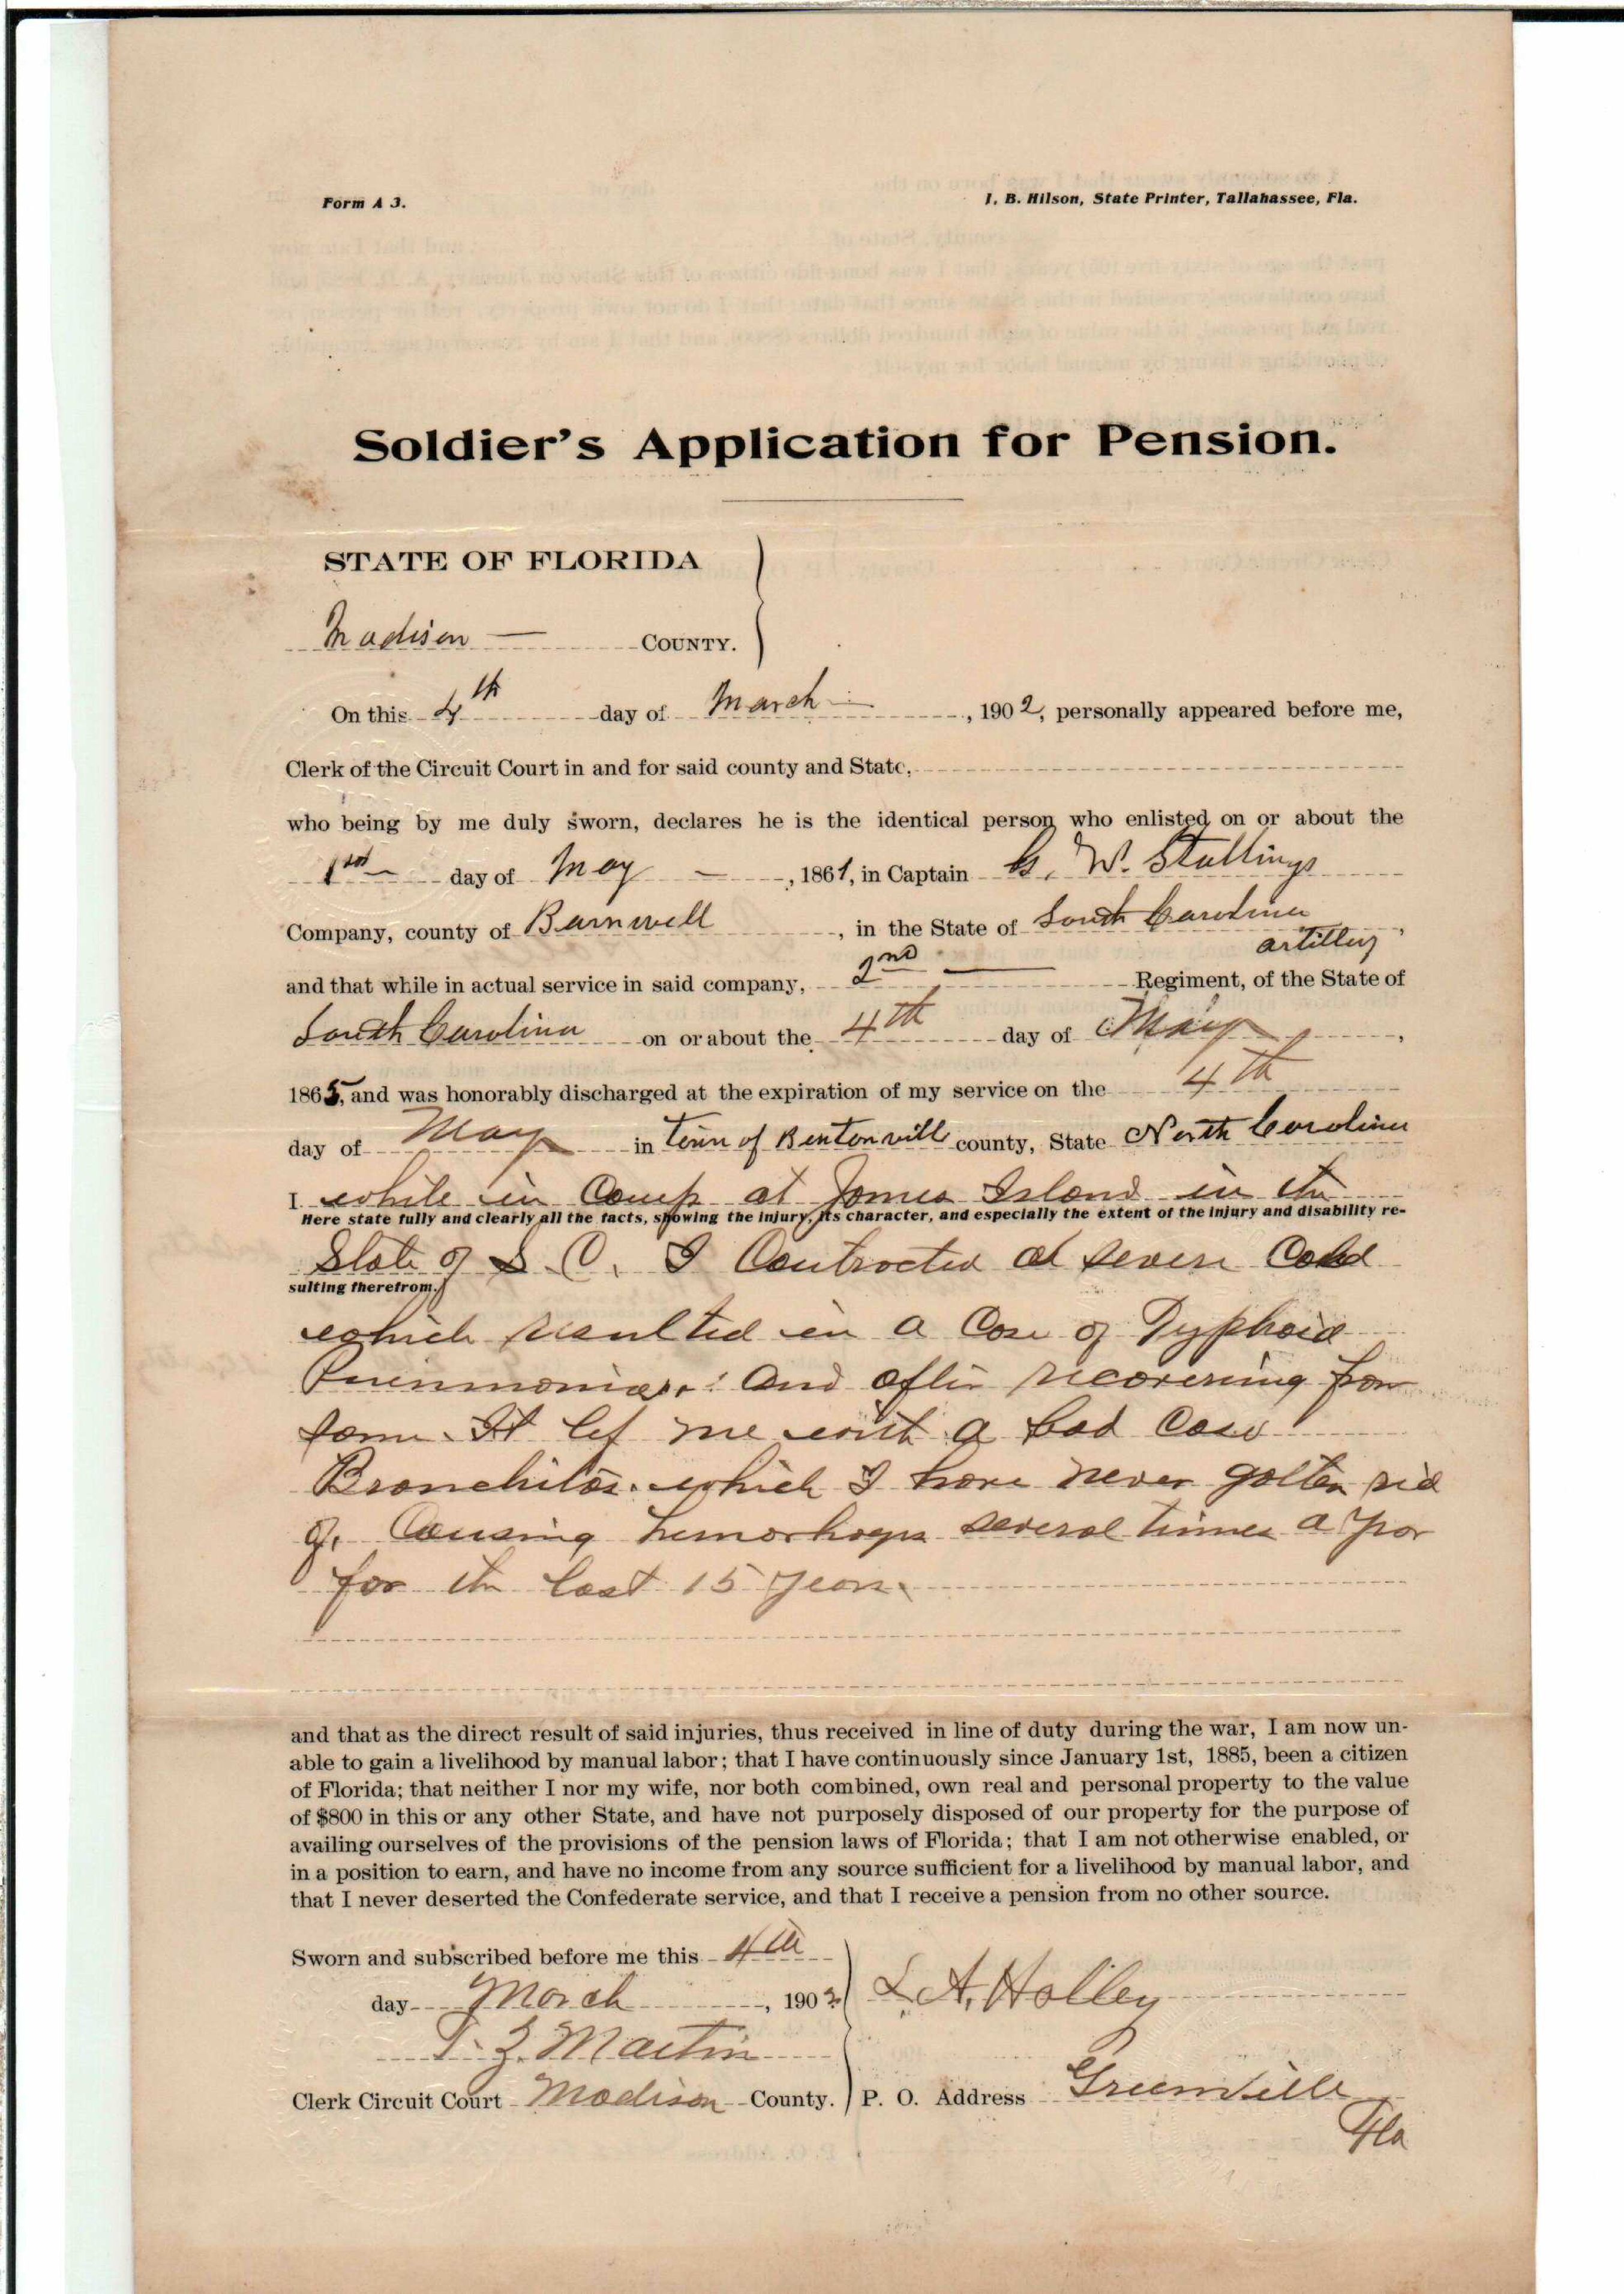 Form A 3.
I. B. Hilson, State Printer, Tallahassee, Fla.
Soldier's Application for Pension.
STATE OF FLORIDA
Madison — COUNTY.
On this 4th day of March , 1902, personally appeared before me,
Clerk of the Circuit Court in and for said county and State,
who being by me duly sworn, declares he is the identical person who enlisted on or about the
1st day of May — , 1861, in Captain G. W. Stallings
Company, county of Barnwell , in the State of South Carolina
artillery
and that while in actual service in said company, 2nd — Regiment, of the State of
South Carolina on or about the 4th day of May ,
1865, and was honorably discharged at the expiration of my service on the 4th
day of May in town of Bentonvill county, State North Carolina
I while in Camp at James Island in the
Here state fully and clearly all the facts, showing the injury, its character, and especially the extent of the injury and disability re-
State of S. C. I Contracted a severe Cold
sulting therefrom.
which resulted in a Case of Typhoid
Pneinmonia. And after recovering from
same. It lef me with a bad Case
Bronchitas. which I have never gotten rid
of. Causing hemorhages several times a year
for the last 15 years.
and that as the direct result of said injuries, thus received in line of duty during the war, I am now un-
able to gain a livelihood by manual labor; that I have continuously since January 1st, 1885, been a citizen
of Florida; that neither I nor my wife, nor both combined, own real and personal property to the value
of $800 in this or any other State, and have not purposely disposed of our property for the purpose of
availing ourselves of the provisions of the pension laws of Florida; that I am not otherwise enabled, or
in a position to earn, and have no income from any source sufficient for a livelihood by manual labor, and
that I never deserted the Confederate service, and that I receive a pension from no other source.
Sworn and subscribed before me this 4th
day March , 1902 L. A. Holley
T. Z. Martin
Clerk Circuit Court Madison County. P. O. Address Greenville
Fla